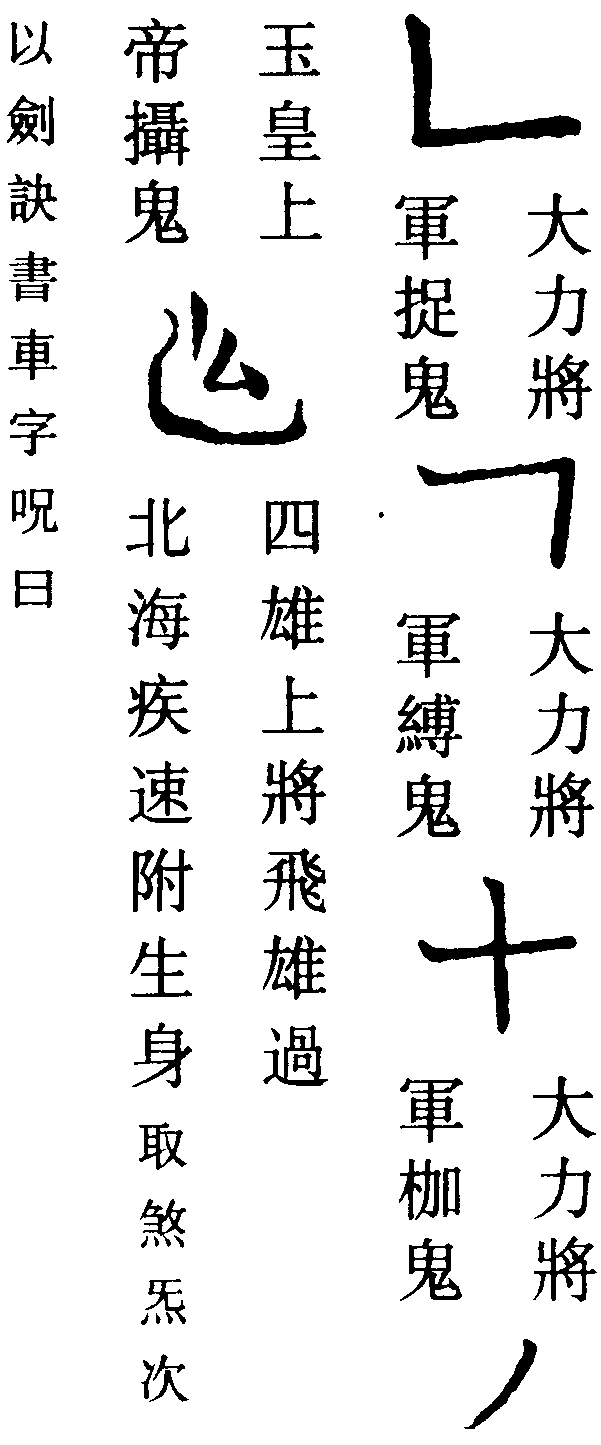 大力將
軍捉鬼
大力將
軍縛鬼
大力將
軍枷鬼
玉皇上
帝攝鬼
四雄上將飛雄過
北海疾速附生身取煞炁次
以劍訣書車字呪曰